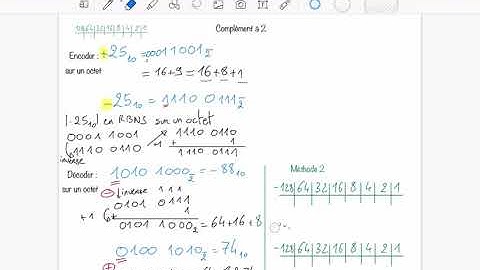 128|64|32|16|8|4|2|1
Complément à 2
Encoder : +25₁₀ = 00011001₂
sur un octet
= 16+9 = 16+8+1
-25₁₀ = 1110 0111₂
|-25₁₀| en RBNS sur un octet
0001 1001
1110 0110
inverse
1110 0110
+ 1
1110 0111
Décoder : 1010 1000₂ = -88₁₀
sur un octet
inverse 1 1 1
0101 0111
+1
1
0101 1000₂ = 64+16+8
0100 1010₂ = 74₁₀
Méthode 2
-128|64|32|16|8|4|2|1
-128|64|32|16|8|4|2|1